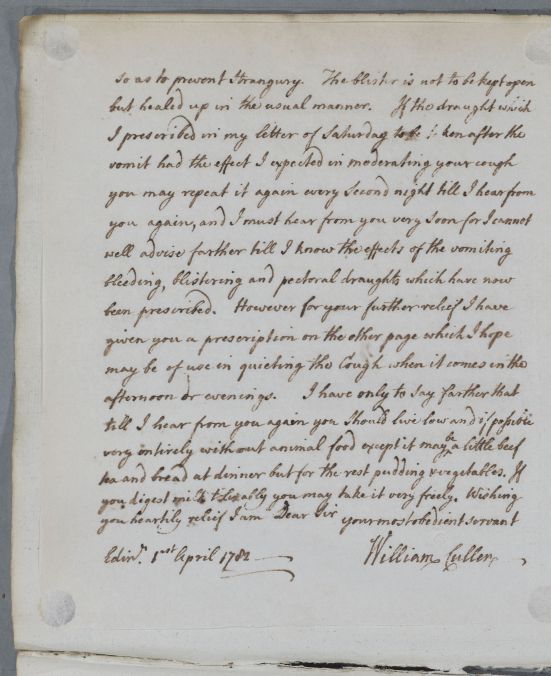 so as to prevent Strangury. The blister is not to be kept open
but healed up in the usual manner. If the draught which
I prescribed in my letter of Saturday to be after the
vomit had the effect I expected in moderating your cough
you may repeat it again every Second night till I hear from
you again, and I must hear from you very soon for I cannot
well advise farther till I know the effects of the vomiting
bleeding, blistering and pectoral draughts which have now
been prescribed. However for your further relief I have
given you a prescription on the other page which I hope
may be of use in quieting the Cough when it comes in the
afternoon or evenings. I have only to say farther that
till I hear from you again you should live low and if possible
very entirely without animal food except it may be a little beef
tea and bread at dinner but for the rest pudding & vegetables. If
you digest milk tolerably you may take it very freely. Wishing
you heartily relief I am Dear Sir your most obedient servant
Edinr. 1st April 1782 William Cullen